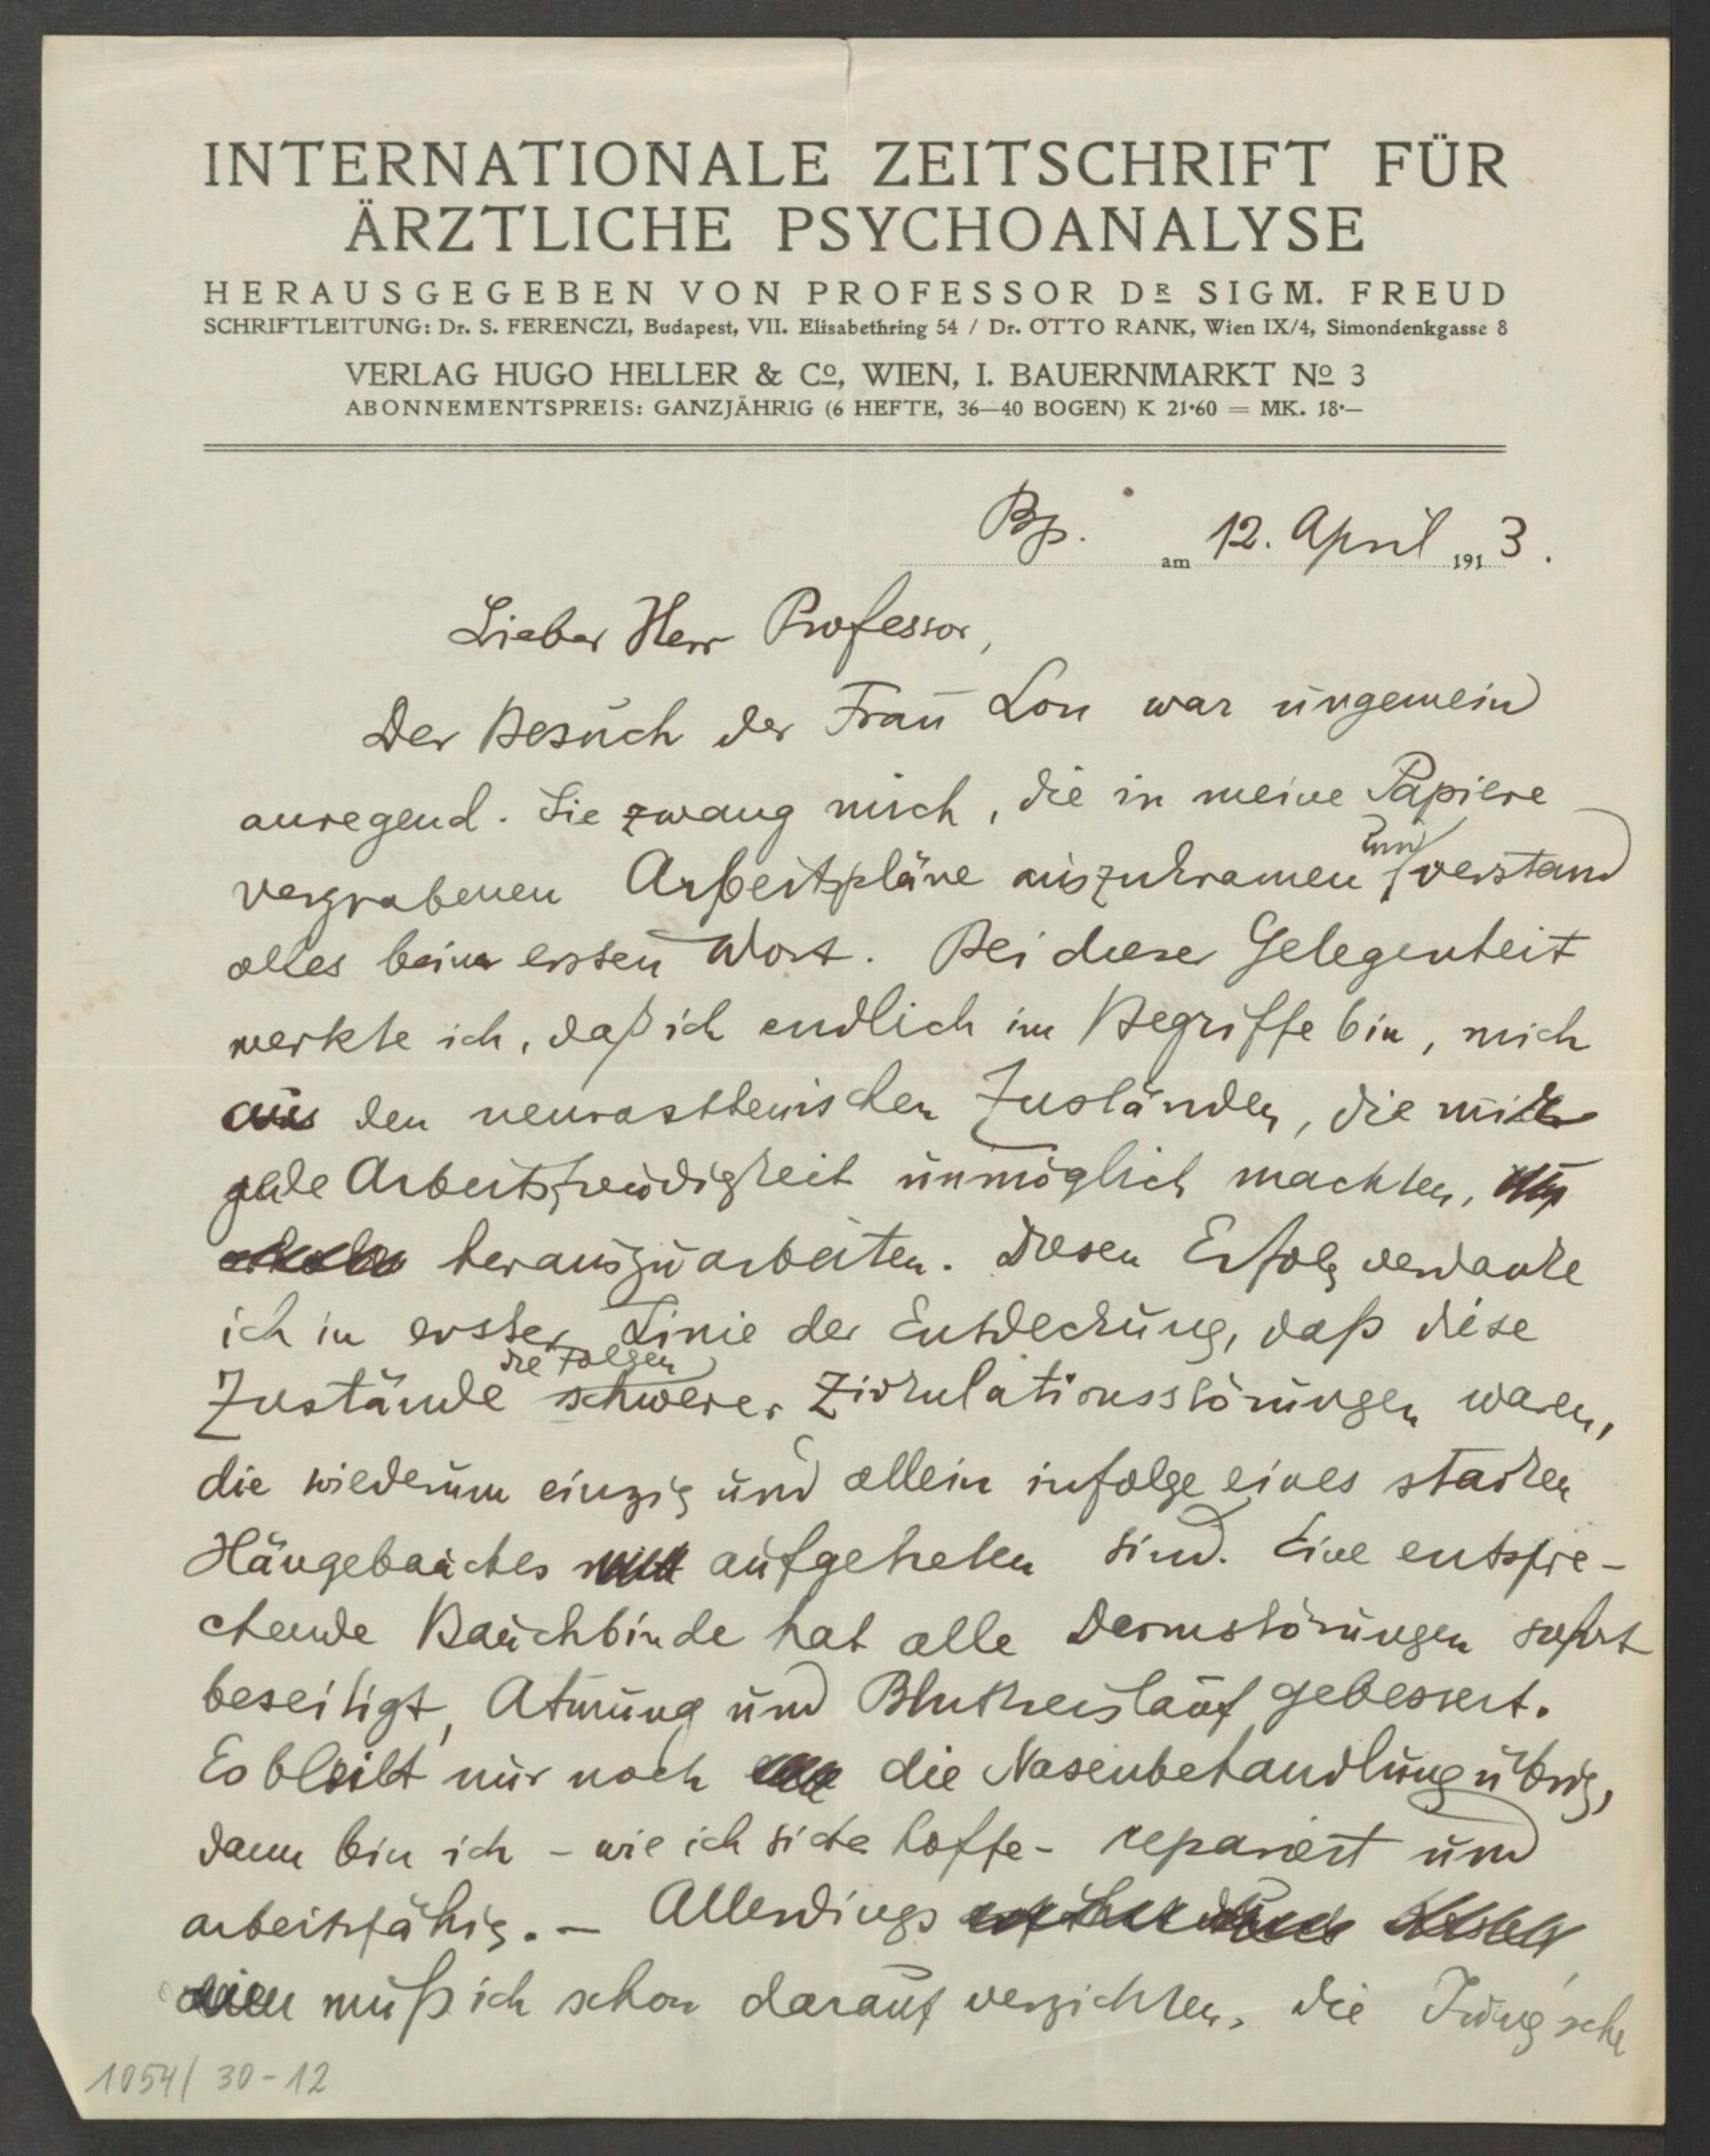 INTERNATIONALE ZEITSCHRIFT FÜR
ÄRZTLICHE PSYCHOANALYSE
HERAUSGEGEBEN VON PROFESSOR DR SIGM. FREUD
SCHRIFTLEITUNG: Dr. S. FERENCZI, Budapest, VII. Elisabethring 54 / Dr. OTTO RANK, Wien IX/4, Simondenkgasse 8
VERLAG HUGO HELLER & Co, WIEN, I. BAUERNMARKT No 3
ABONNEMENTSPREIS: GANZJÄHRIG (6 HEFTE, 36—40 BOGEN) K 21·60 = MK. 18·—
Bp. am 12. April 1913.
Lieber Herr Professor,
Der Besuch der Frau Lou war ungemein
anregend. Sie zwang mich, die in meine Papiere
vergrabenen Arbeitspläne auszukramen und verstand
alles beim ersten Wort. Bei dieser Gelegenheit
merkte ich, daß ich endlich im Begriffe bin, mich
aus den neurasthenischen Zuständen, die mir
jede Arbeitsfreudigkeit unmöglich machten,
herauszuarbeiten. Diesen Erfolg verdanke
ich in erster Linie der Entdeckung, daß diese
Zustände die Folgen schwerer Zirkulationsstörungen waren,
die wiederum einzig und allein infolge eines starken
Hängebauches aufgetreten sind. Eine entspre-
chende Bauchbinde hat alle Darmstörungen sofort
beseitigt, Atmung und Blutkreislauf gebessert.
Es bleibt nur noch die Nasenbehandlung übrig,
dann bin ich – wie ich sicher hoffe – repariert und
arbeitsfähig. – Allerdings
muß ich schon darauf verzichten, die Jung'sche
1054/30-12